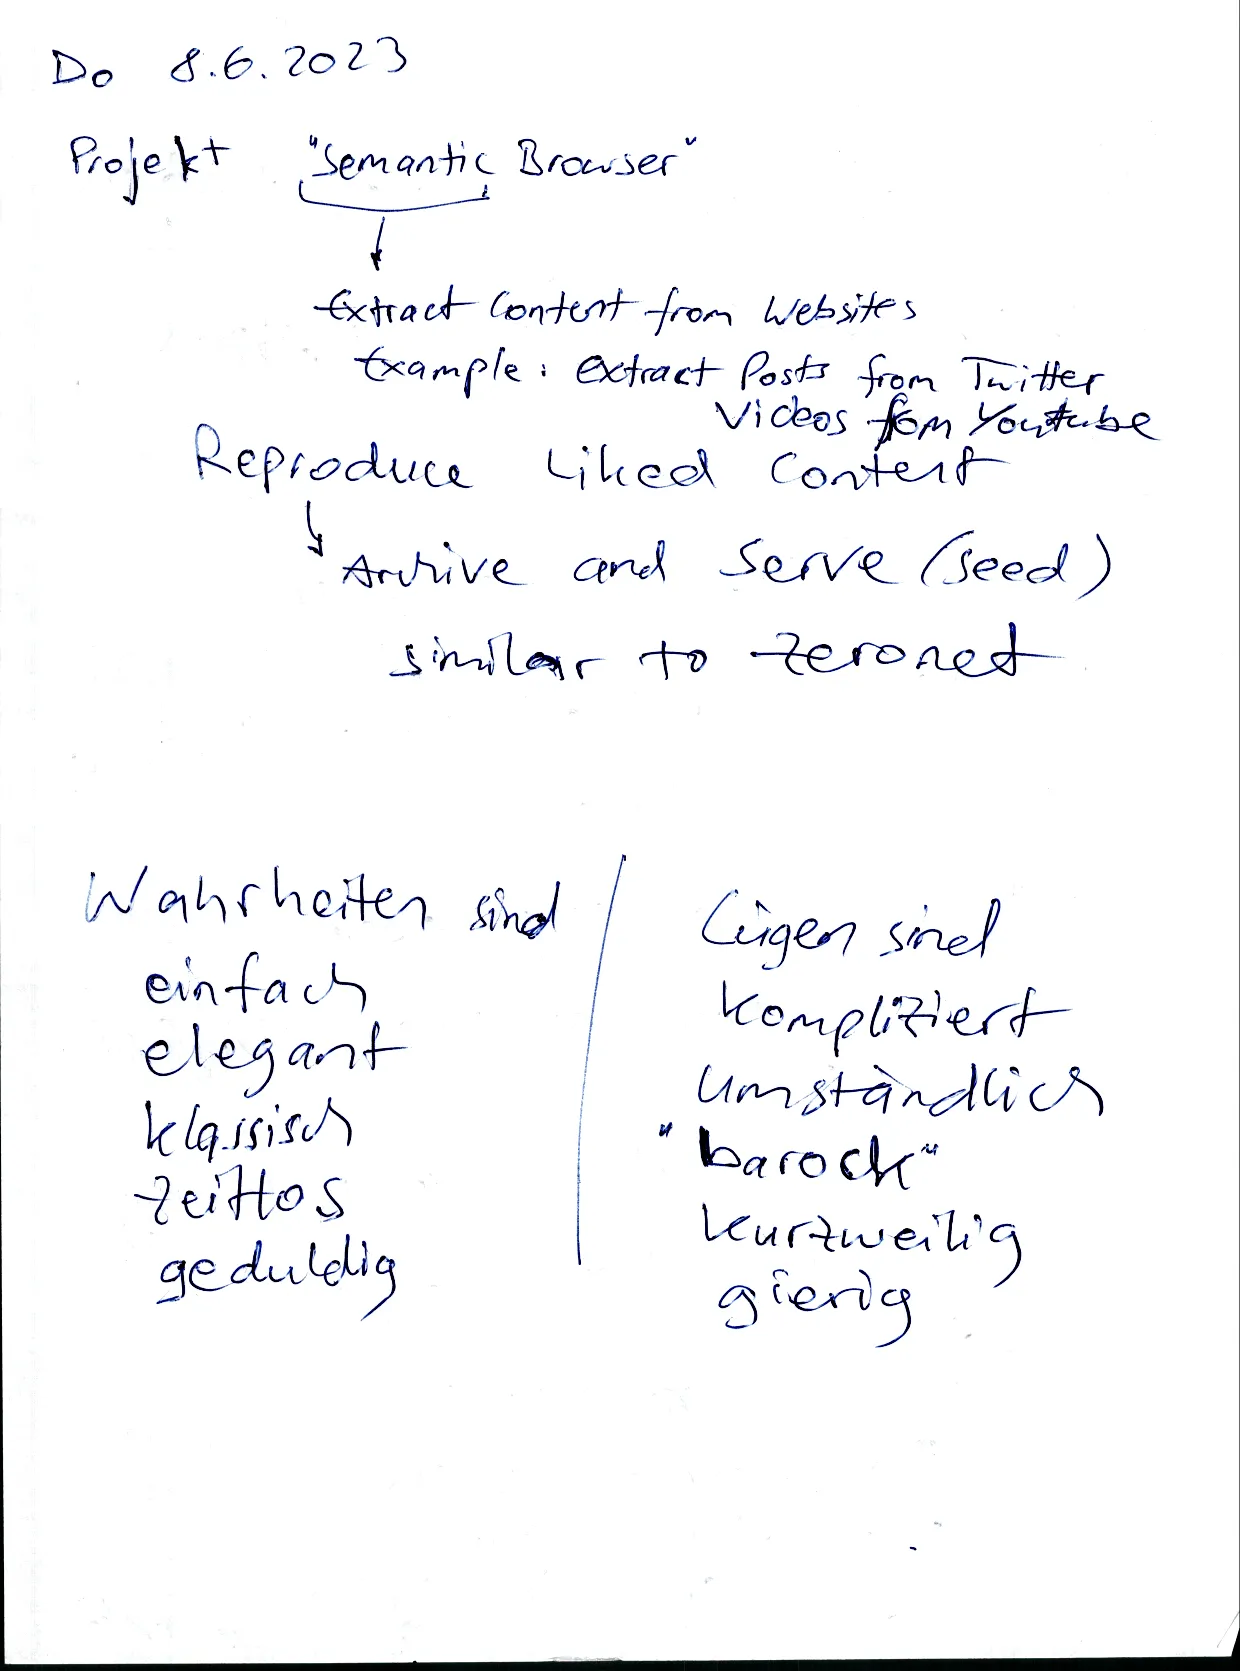 Do 8.6.2023
Projekt "Semantic Browser"
Extract Content from Websites
Example: Extract Posts from Twitter
Videos from Youtube
Reproduce Liked Content
Archive and Serve (seed)
similar to zeronet
Wahrheiten sind
einfach
elegant
klassisch
zeitlos
geduldig
Lügen sind
kompliziert
umständlich
"barock"
kurzweilig
gierig